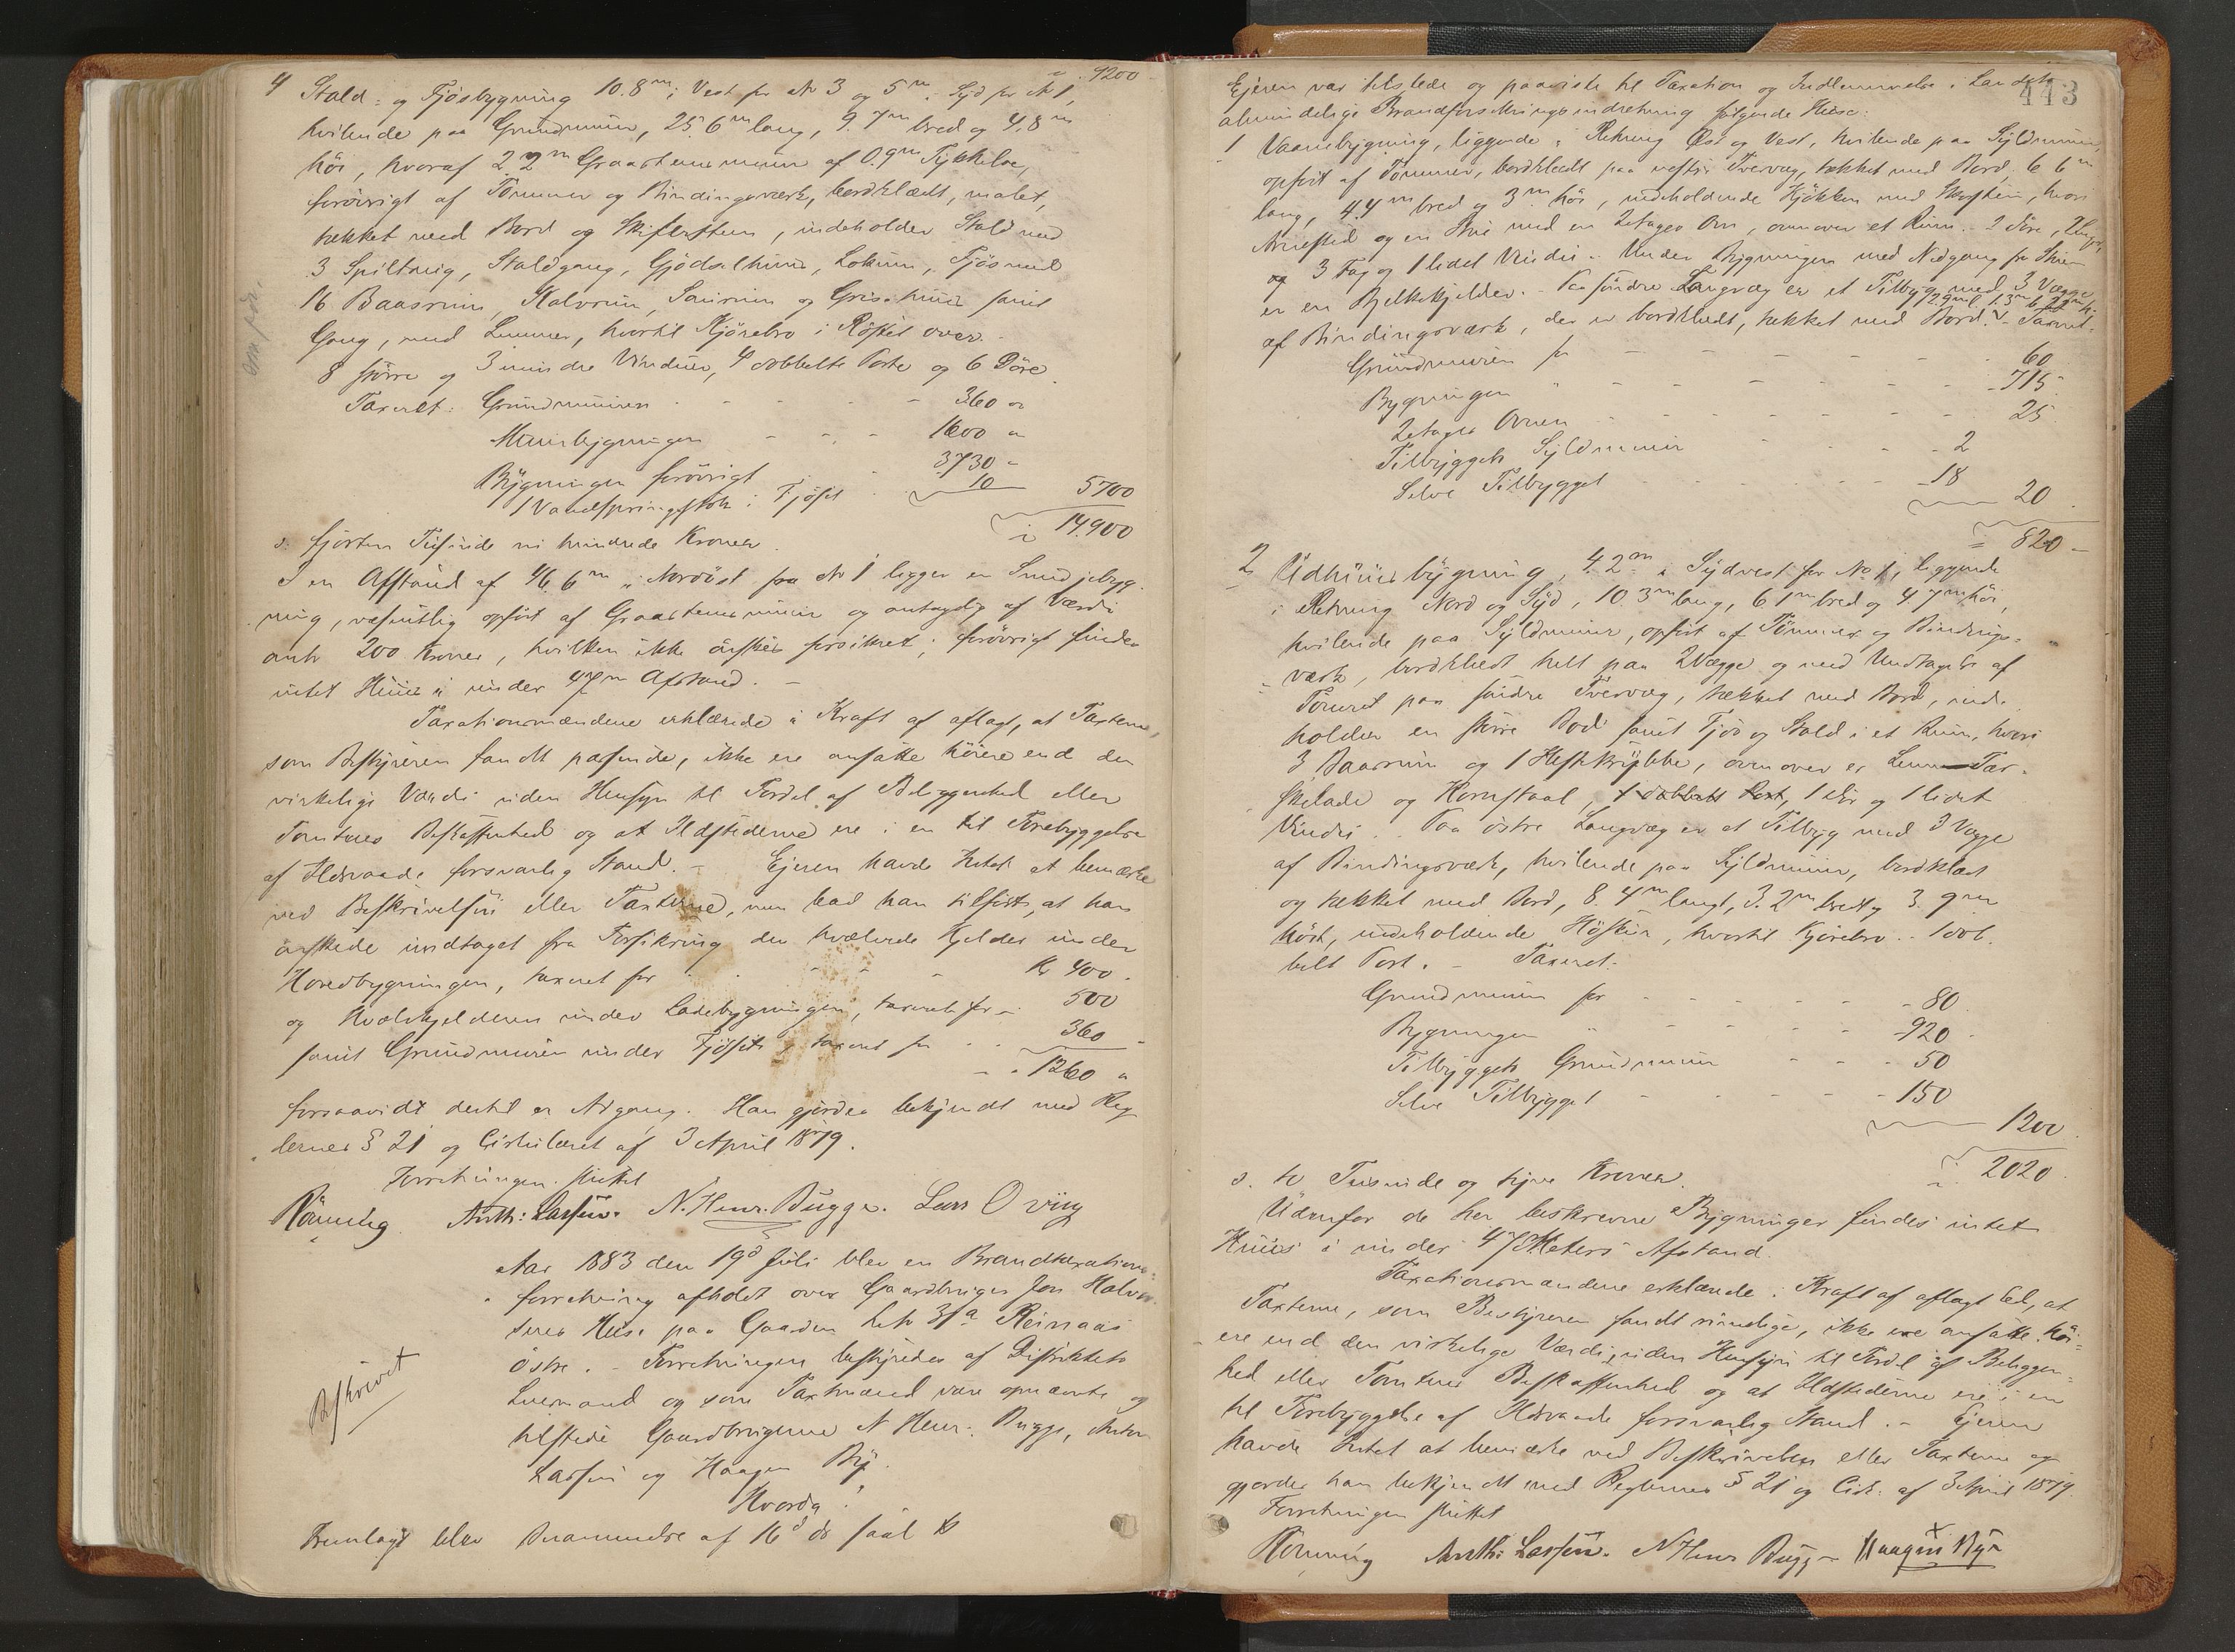 " 9200
4 Stald- og Fjösbygning 10.8m i Vest for No 3 og 5m i Syd for No 1,
hvilende paa Grundmuur, 25.6m lang, 9.7m bred og 4.8m
höi, hvoraf 2.2m Graastensmuur af 0.9m Tykkelse,
forövrigt af Tömmer og Bindingsværk, bordklædt, malet,
tækket med Bord og Skifersteen, indeholder Stald med
3 Spiltaug, Staldgang, Gjödselhuus, Lokum, Fjös med
16 Baasrum, Kalverum, Sauerum og Grisehuus samt
Gang, med Lemmer, hvortil Kjörebro i Röstet over.
8 större og 3 mindre Vinduer, 4 dobbelte Porte og 6 Döre.
Taxeret: Grundmuuren - - - 360 "
Muurbygningen - - - 1600 "
Bygningen forövrigt 3730 "
1 Vandspringstok i Fjöset 10 5700
14900
s: fjorten Tusinde ni hundrede Kroner.
I en Afstand af 46.6m i Nordöst fra No 1 ligger en Smidjebyg-
ning, væsentlig opfört af Graastensmuur og antagelig af Værdi
omtr 200 Kroner, hvilken ikke önskes forsikret; forövrigt findes
intet Huus i under 47m Afstand. -
Taxationsmændene erklærede i Kraft af aflagt, at Taxterne,
som Bestyreren fandt passende, ikke ere ansatte höiere end den
virkelige Værdi uden Hensyn til Fordel af Beliggenhed eller
Tomtens Beskaffenhed og at Ildstederne ere i en til Forebyggelse
af Ildsvaade forsvarlig Stand. - Ejeren havde Intet at bemærke
ved Beskrivelsen eller Taxterne, men bad han tilfört, at han
önskede undtaget fra Forsikring den hvælvede Kjelder under
Hovedbygningen, taxeret for - - - Kr 400.
og Hvælvkjelderen under Ladebygningen, taxeret for - 500
samt Grundmuren under Fjöset, taxeret for - - 360
- - 1260 "
forsaavidt dertil er Adgang. Han gjordes bekjendt med Reg-
lernes § 21 og Cirkulæret af 3 April 1879.
Forretningen sluttet
Rönning Anth: Lassen. N. Henr. Bugge. Lars Oving
Aar 1883 den 19d Juli blev en Brandtaxations-
forretning afholdt over Gaardbruger Jon Halvor-
sens Huse paa Gaarden Lb No 31a Reinaas
östre. - Forretningen bestyredes af Distriktets
Lensmand og som Taxtmænd vare opnævnte og
tilstede Gaardbrugerne N Henr. Bugge, Anton
Lassen og Haagen By.
Beskrevet
Hvorda:
Fremlagt blev Anmeldelse af 16d ds saal
443
Ejeren var tilstede og paaviste til Taxation og Indlemmelse i Landets
almindelige Brandforsikringsindretning fölgende Huse:
1 Vaaningsbygning, liggende i Retning Öst og Vest, hvilende paa Syldmuur,
opfört af Tömmer, bordklædt paa vestre Tvervæg, tækket med Bord, 6.6m
lang, 4.4m bred og 3m höi, indeholdende Kjökken med Skorsten, hvori
Arnested og en Stue med en 2etages Ovn, ovenover et Rum. 2 Döre,
og 3 Fag og 1 lidet Vindue. Under Bygningen med Nedgang fra Stuen
er en Bjelkekjelder. - Paa söndre Langvæg er et Tilbyg med 3 Vægge
af Bindingsværk, der er bordklædt, tækket med Bord. - Taxeret:
Grundmuuren for - - - - - 60
Bygningen " - - - - - 715
2etages Ovnen - - - - - 25
Tilbyggets Syldmuur - - - 2
Selve Tilbygget - - - - 18 20
820 -
2 Udhuusbygning, 4.2m i Sydvest for No 1, liggende
i Retning Nord og Syd, 10.3m lang, 6.1m bred og 4.7m höi,
hvilende paa Syldmuur, opfört af Tömmer og Bindings-
værk, bordklædt helt paa 2 Vægge og med Undtagelse af
Töm̅ret paa söndre Tvervæg, tækket med Bord, inde-
holder en större Bod samt Fjös og Stald i et Rum, hvori
3 Baasrum og 1 Hestekrybbe, ovenover er Lem Tær-
skelade og Kornstaal, 1 dobbelt Port, 1 Dör og 1 lidet
Vindu. Paa östre Langvæg er et Tilbyg med 3 Vægge
af Bindingsværk, hvilende paa Syldmuur, bordklædt
og tækket med Bord, 8.4m langt, 3.2m bredt og 3.9m
höit, indeholdende Höskur, hvortil Kjörebro. - 1 dob-
belt Port. - Taxeret:
Grundmuuren for - - - - - 80
Bygningen " - - - - 920
Tilbyggets Grundmuur - - - 50
Selve Tilbygget - - - - - 150
1200
2020
s. to Tusinde og tyve Kroner.
Udenfor de her beskrevne Bygninger findes intet
Huus i under 47 Meters Afstand.
Taxationsmændene erklærede i Kraft af aflagt Ed, at
Taxterne, som Bestyreren fandt rimelige, ikke ere ansatte höi-
ere end den virkelige Værdi, uden Hensyn til Fordel af Beliggen-
hed eller Tomtens Beskaffenhed og at Ildstederne ere i en
til Forebyggelse af Ildsvaade forsvarlig Stand. - Ejeren
havde Intet at bemærke ved Beskrivelsen eller Taxterne og
gjordes han bekjendt med Reglernes § 21 og Cirk: af 3 April 1879.
Forretningen sluttet
Rönning Anth: Lassen. N Henr Bugge Haagen By